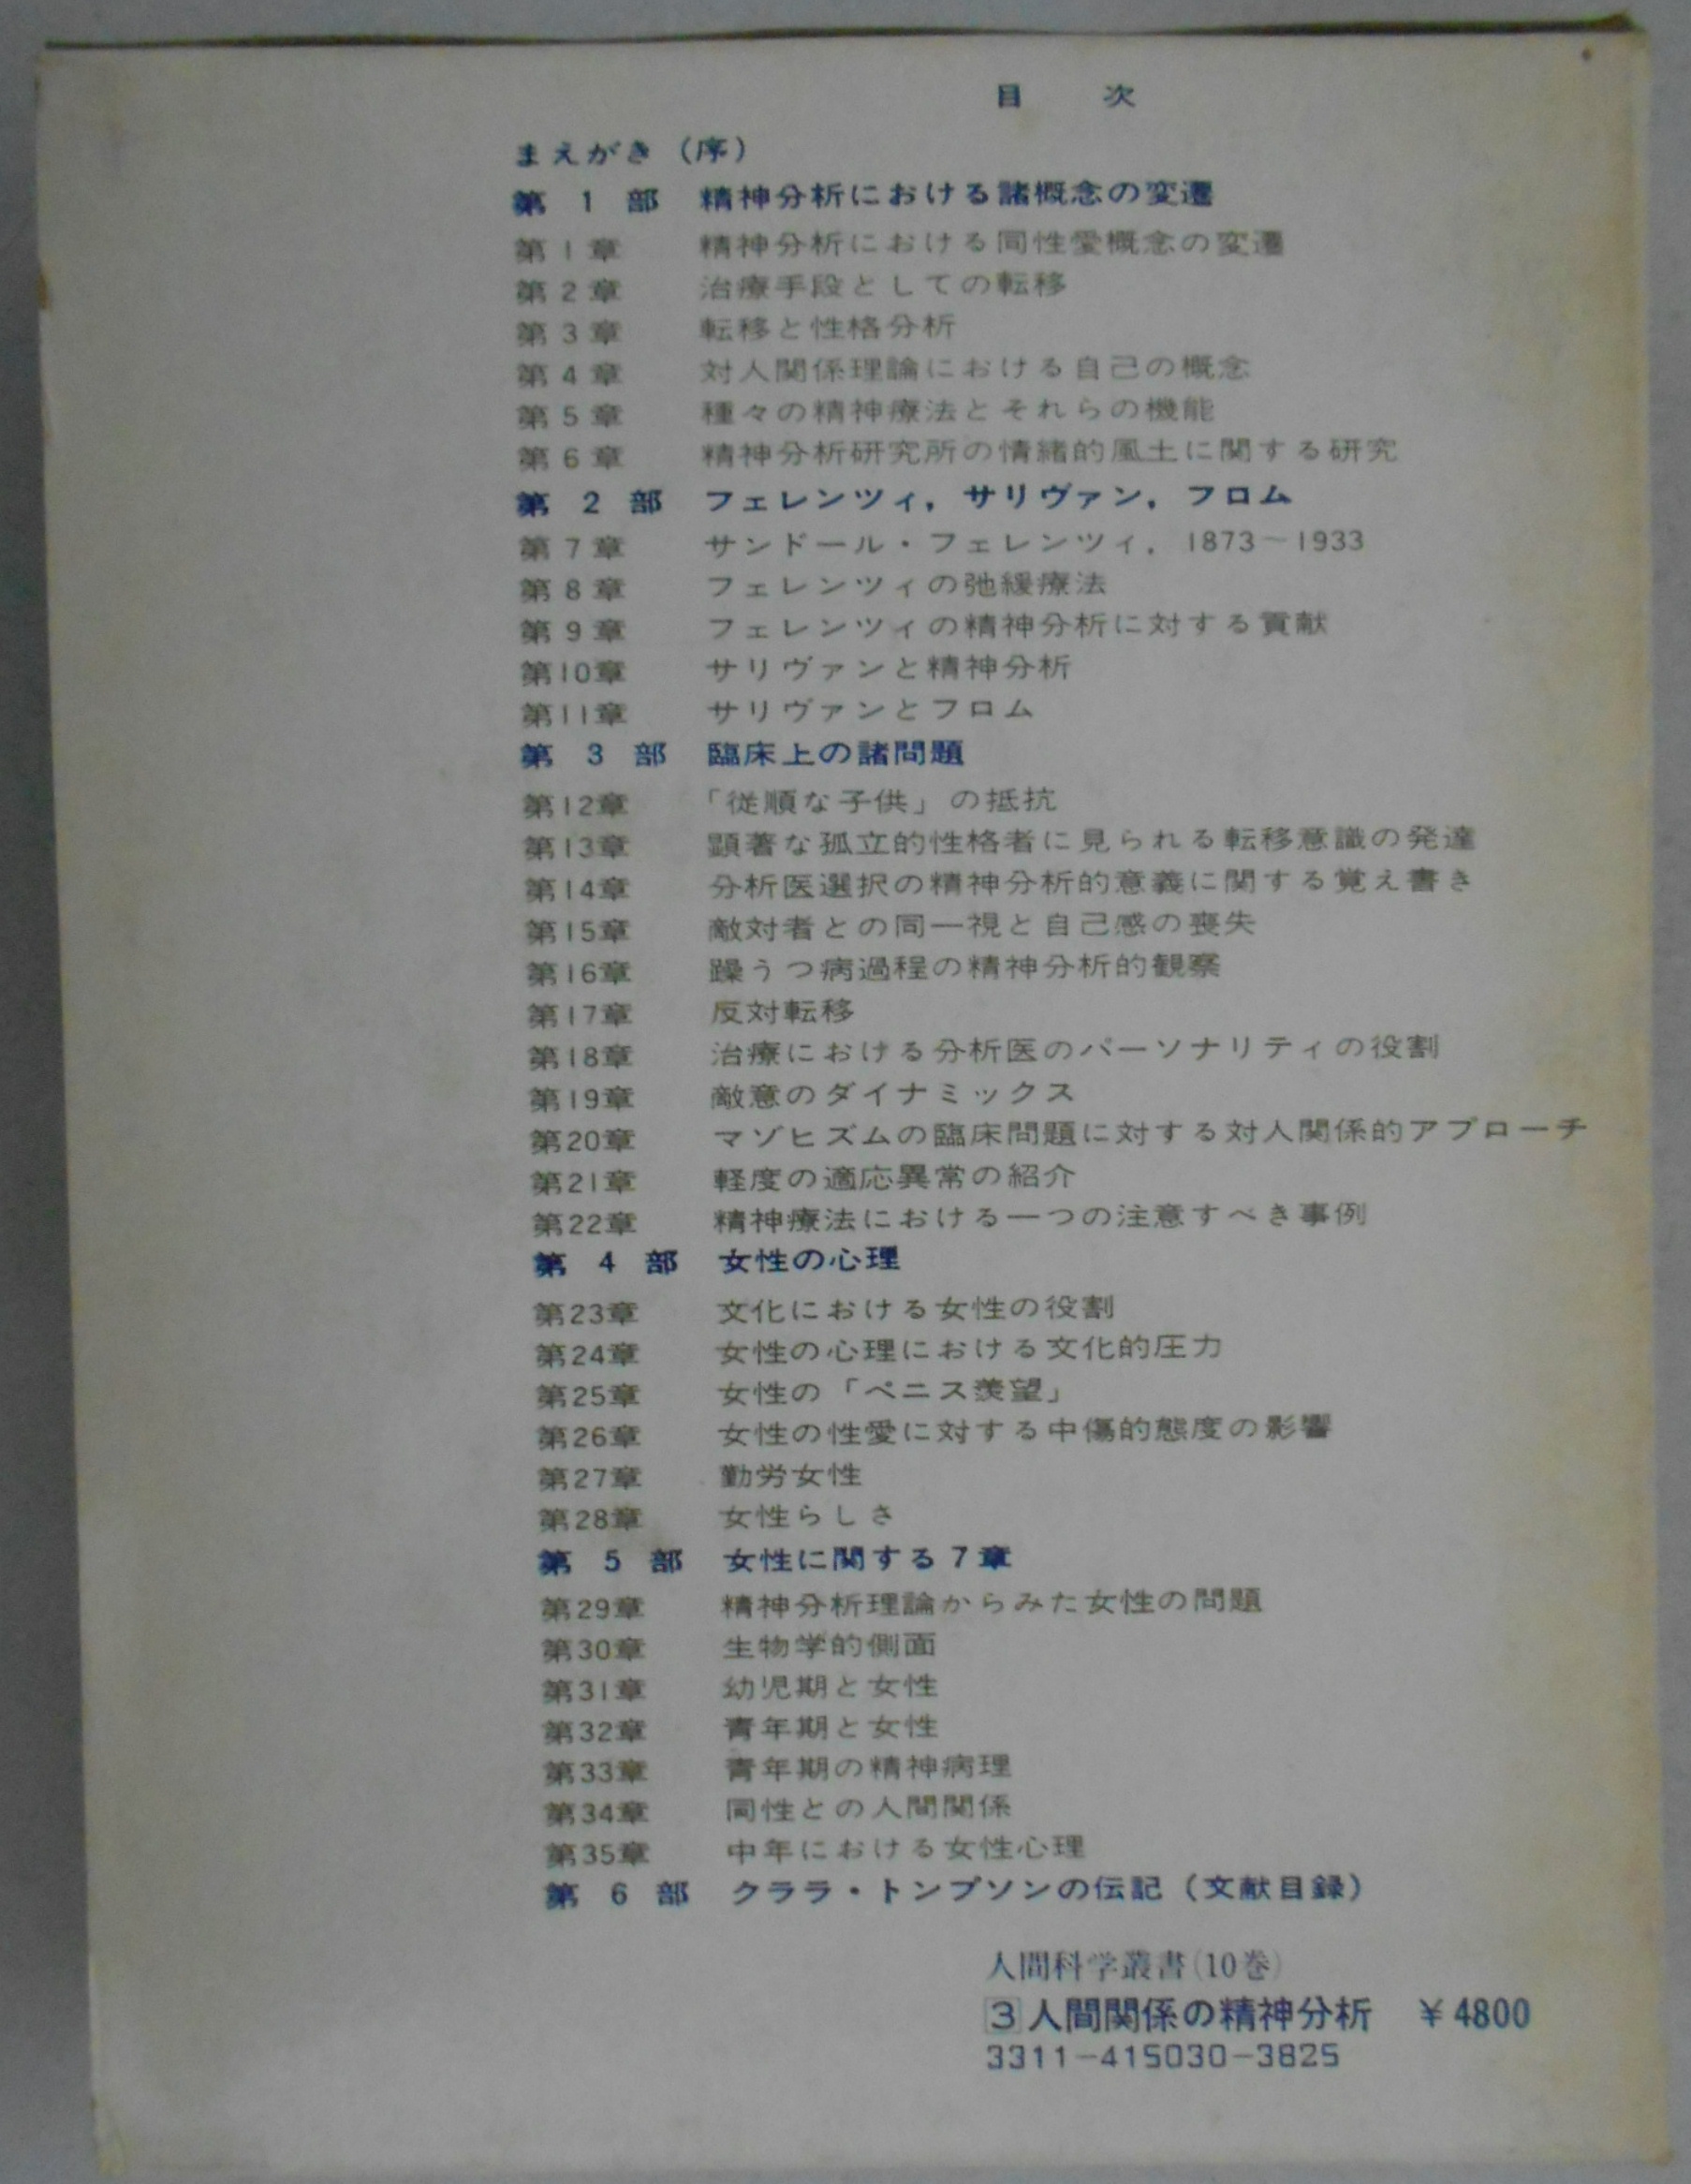 目 次
まえがき（序）
第 1 部 精神分析における諸概念の変遷
第1章 精神分析における同性愛概念の変遷
第2章 治療手段としての転移
第3章 転移と性格分析
第4章 対人関係理論における自己の概念
第5章 種々の精神療法とそれらの機能
第6章 精神分析研究所の情緒的風土に関する研究
第 2 部 フェレンツィ，サリヴァン，フロム
第7章 サンドール・フェレンツィ，1873〜1933
第8章 フェレンツィの弛緩療法
第9章 フェレンツィの精神分析に対する貢献
第10章 サリヴァンと精神分析
第11章 サリヴァンとフロム
第 3 部 臨床上の諸問題
第12章 「従順な子供」の抵抗
第13章 顕著な孤立的性格者に見られる転移意識の発達
第14章 分析医選択の精神分析的意義に関する覚え書き
第15章 敵対者との同一視と自己感の喪失
第16章 躁うつ病過程の精神分析的観察
第17章 反対転移
第18章 治療における分析医のパーソナリティの役割
第19章 敵意のダイナミックス
第20章 マゾヒズムの臨床問題に対する対人関係的アプローチ
第21章 軽度の適応異常の紹介
第22章 精神療法における一つの注意すべき事例
第 4 部 女性の心理
第23章 文化における女性の役割
第24章 女性の心理における文化的圧力
第25章 女性の「ペニス羨望」
第26章 女性の性愛に対する中傷的態度の影響
第27章 勤労女性
第28章 女性らしさ
第 5 部 女性に関する7章
第29章 精神分析理論からみた女性の問題
第30章 生物学的側面
第31章 幼児期と女性
第32章 青年期と女性
第33章 青年期の精神病理
第34章 同性との人間関係
第35章 中年における女性心理
第 6 部 クララ・トンプソンの伝記（文献目録）
人間科学叢書(10巻)
3 人間関係の精神分析 ￥4800
3311-415030-3825